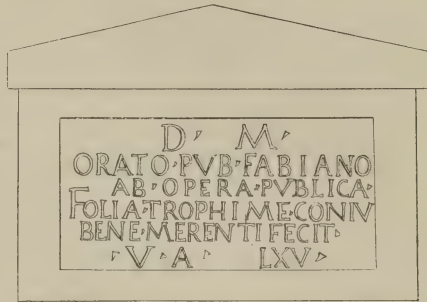 D · M ·
ORATO · PVB · FABIANO
AB · OPERA · PVBLICA ·
FOLIA · TROPHIME · CONIV
BENE · MERENTI FECIT ·
· V · A · LXV ·